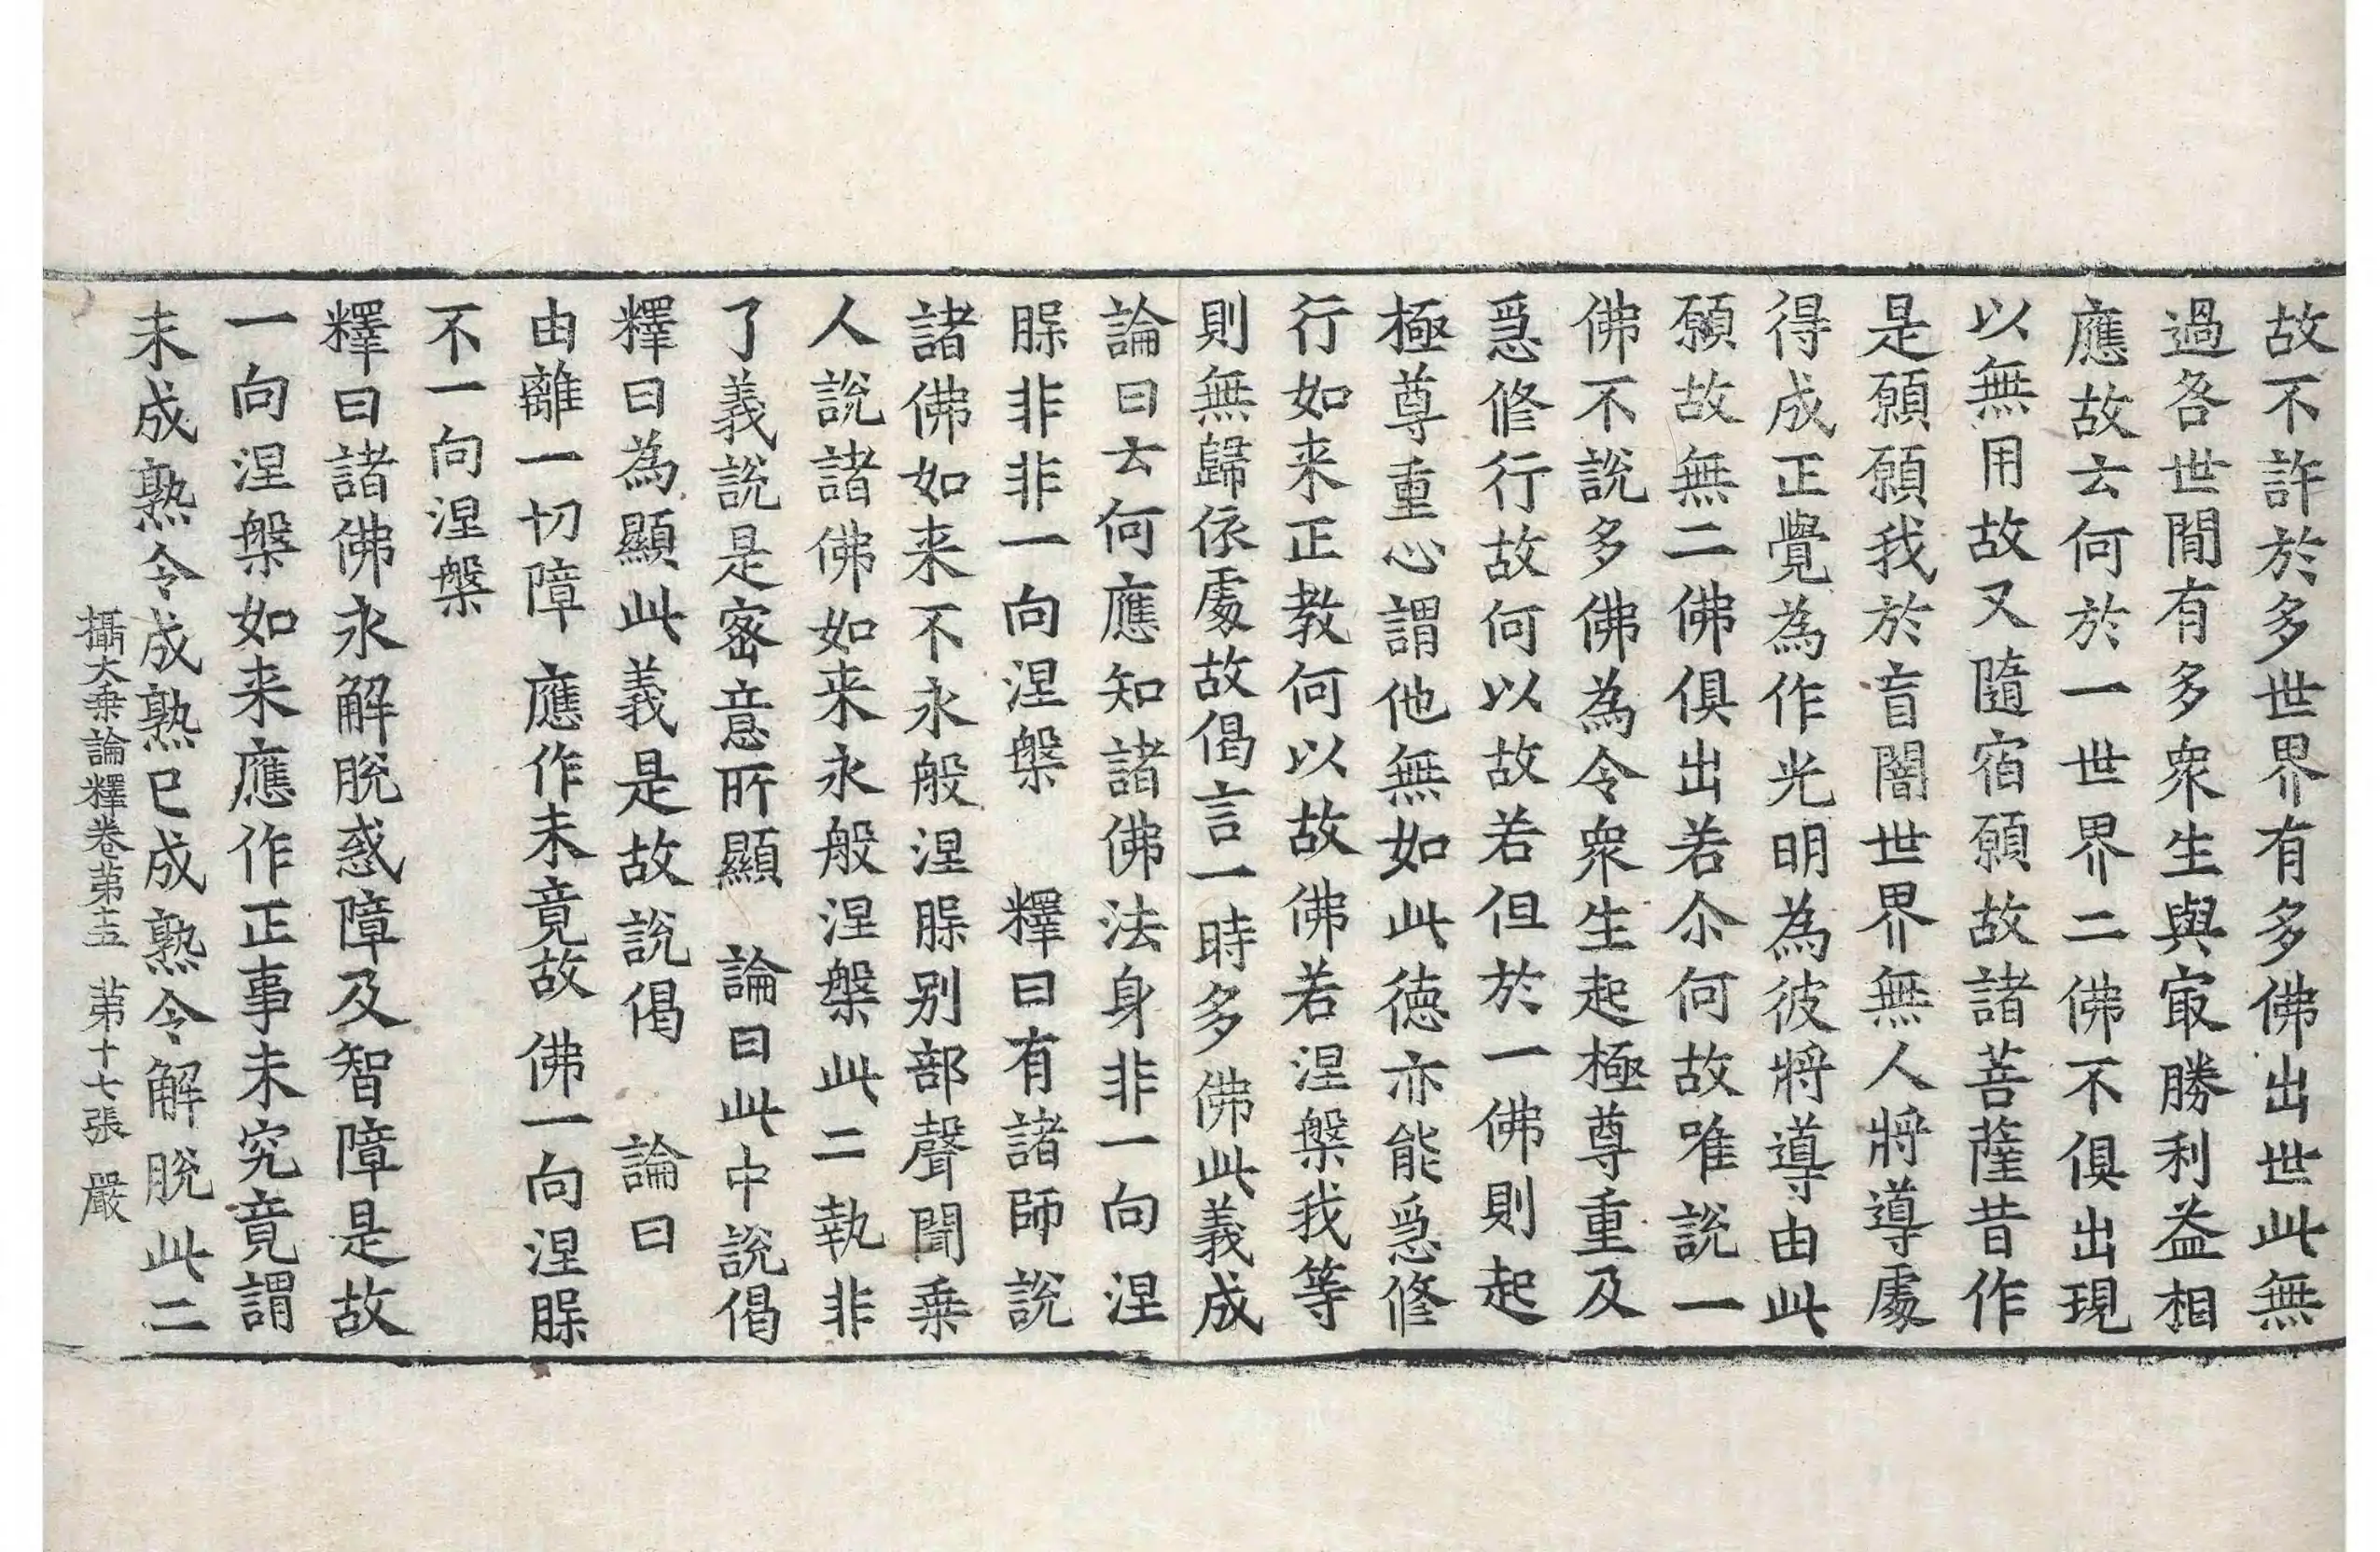 故不許於多世界有多佛出世此無
過各世間有多衆生與㝡勝利益相
應故云何於一世界二佛不俱出現
以無用故又隨宿願故諸菩薩昔作
是願願我於盲闇世界無人將導處
得成正覺為作光明為彼將導由此
願故無二佛俱出若尒何故唯說一
佛不說多佛為令衆生起極尊重及
急修行故何以故若但於一佛則起
極尊重心謂他無如此德亦能急修
行如来正教何以故佛若涅槃我等
則無歸依處故偈言一時多佛此義成
論曰云何應知諸佛法身非一向涅
槃非非一向涅槃　釋曰有諸師說
諸佛如来不永般涅槃别部聲聞乗
人說諸佛如来永般涅槃此二執非
了義說是密意所顯　論曰此中說偈
釋曰為顯此義是故說偈　論曰
由離一切障　應作未竟故　佛一向涅槃
不一向涅槃
釋曰諸佛永解脫惑障及智障是故
一向涅槃如来應作正事未究竟謂
未成熟令成熟已成熟令解脫此二
攝大乗論釋卷苐十五　苐十七張　嚴